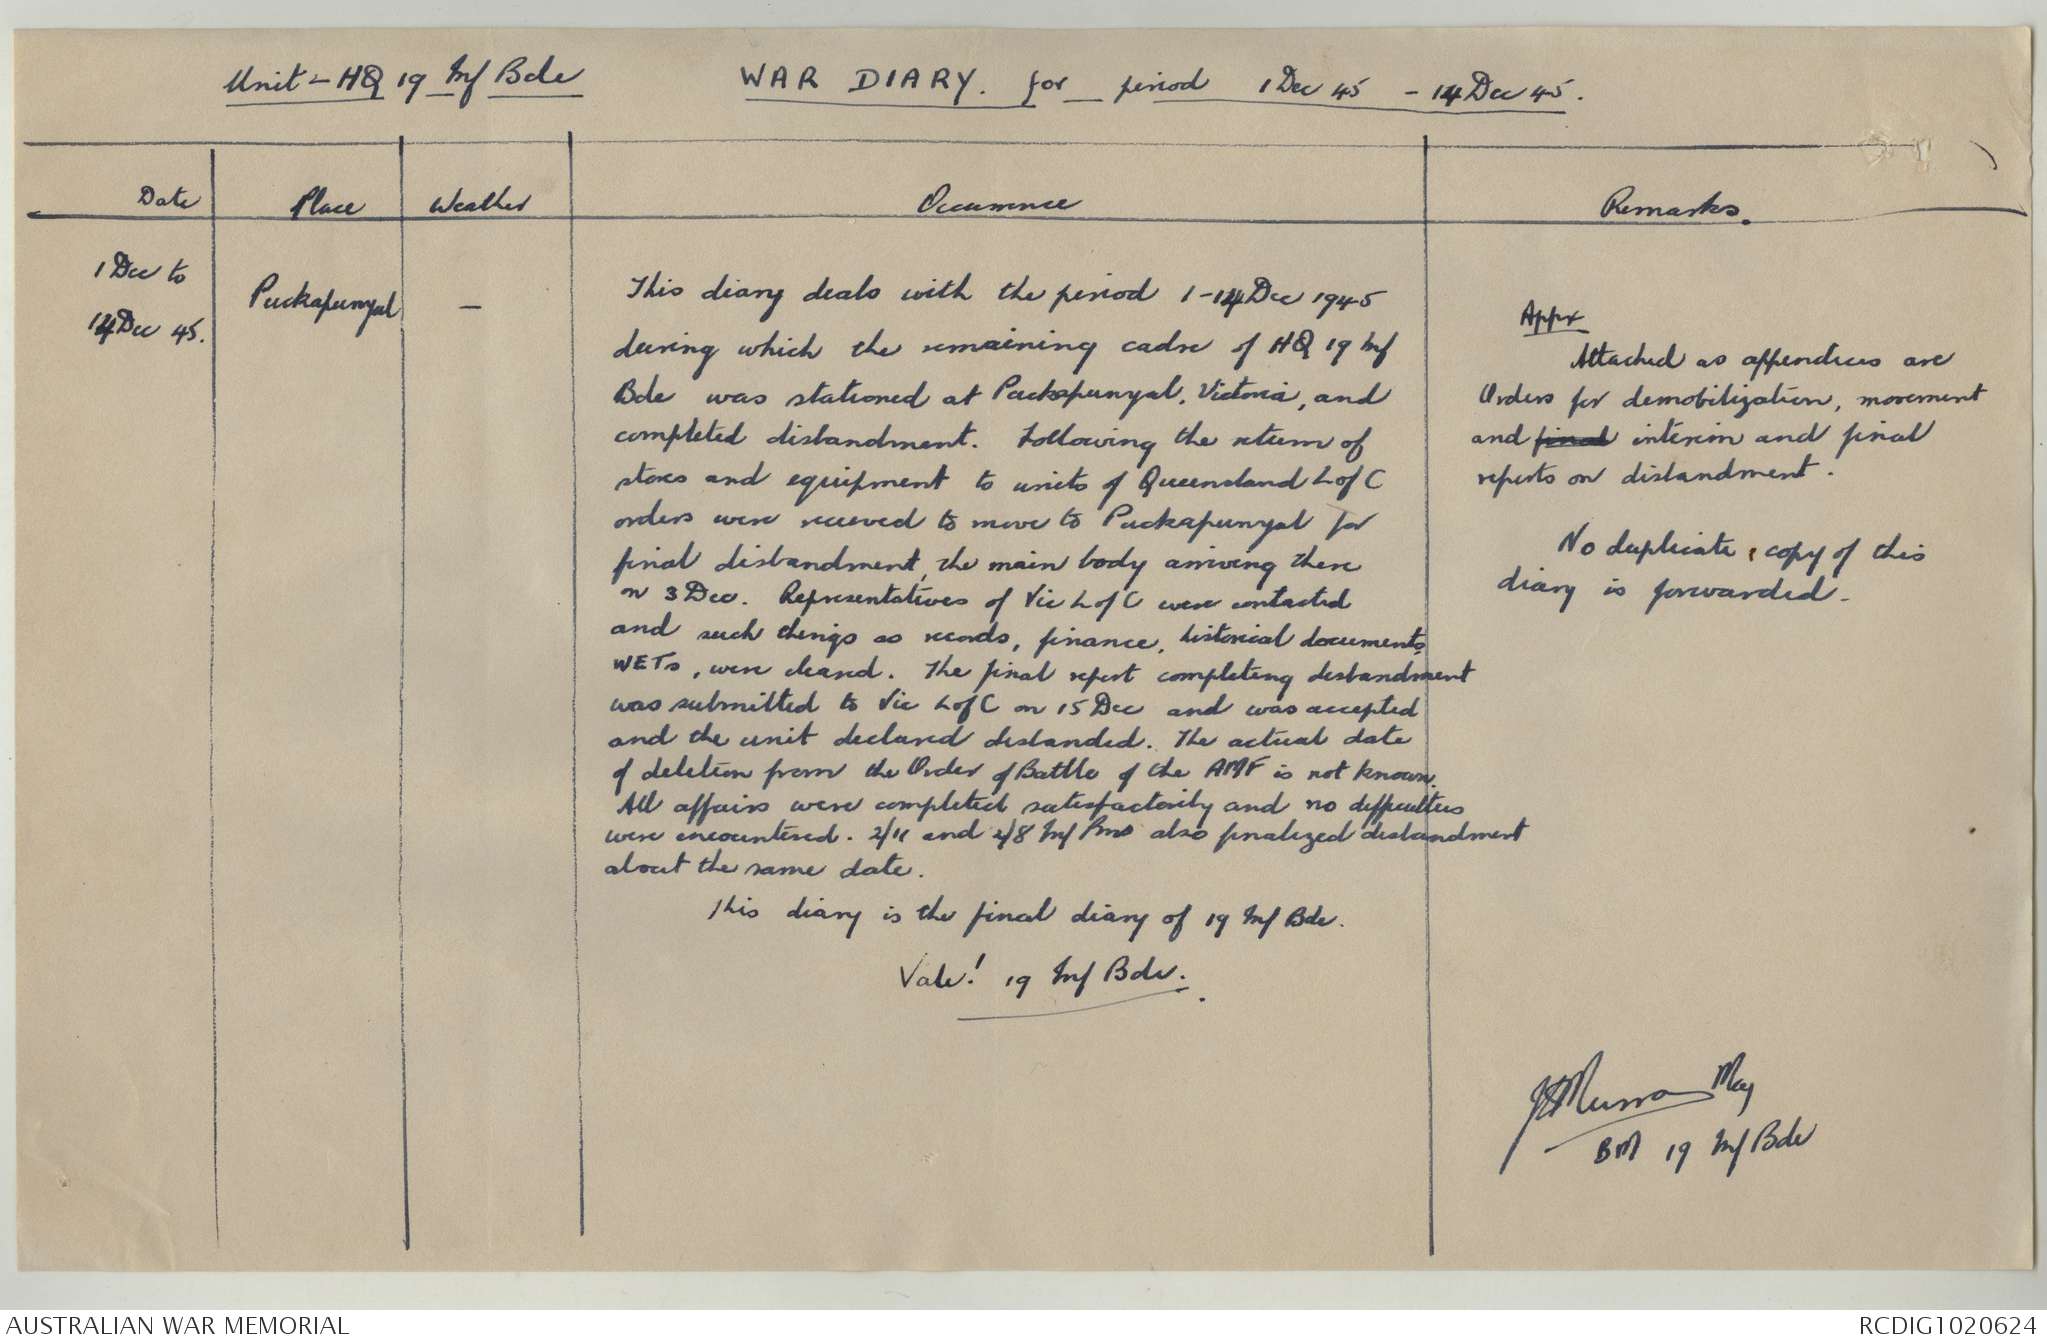 Unit - HQ 19 Inf Bde
WAR DIARY. for period 1 Dec 45 - 14 Dec 45.
Date Place Weather Occurrence Remarks.
1 Dec to
14 Dec 45.
Puckapunyal
-
This diary deals with the period 1-14 Dec 1945
during which the remaining cadre of HQ 19 Inf
Bde was stationed at Puckapunyal, Victoria, and
completed disbandment. Following the return of
stores and equipment to units of Queensland L of C
orders were received to move to Puckapunyal for
final disbandment, the main body arriving there
on 3 Dec. Representatives of Vic L of C were contacted
and such things as records, finance, historical documents,
WETs, were cleared. The final report completing disbandment
was submitted to Vic L of C on 15 Dec and was accepted
and the unit declared disbanded. The actual date
of deletion from the Order of Battle of the AMF is not known.
All affairs were completed satisfactorily and no difficulties
were encountered. 2/11 and 2/8 Inf Bns also finalized disbandment
about the same date.
This diary is the final diary of 19 Inf Bde.
Vale! 19 Inf Bde.
Appx
Attached as appendices are
Orders for demobilization, movement
and final interim and final
reports on disbandment.
No duplicate copy of this
diary is forwarded.
Maj
BM 19 Inf Bde
AUSTRALIAN WAR MEMORIAL
RCDIG1020624